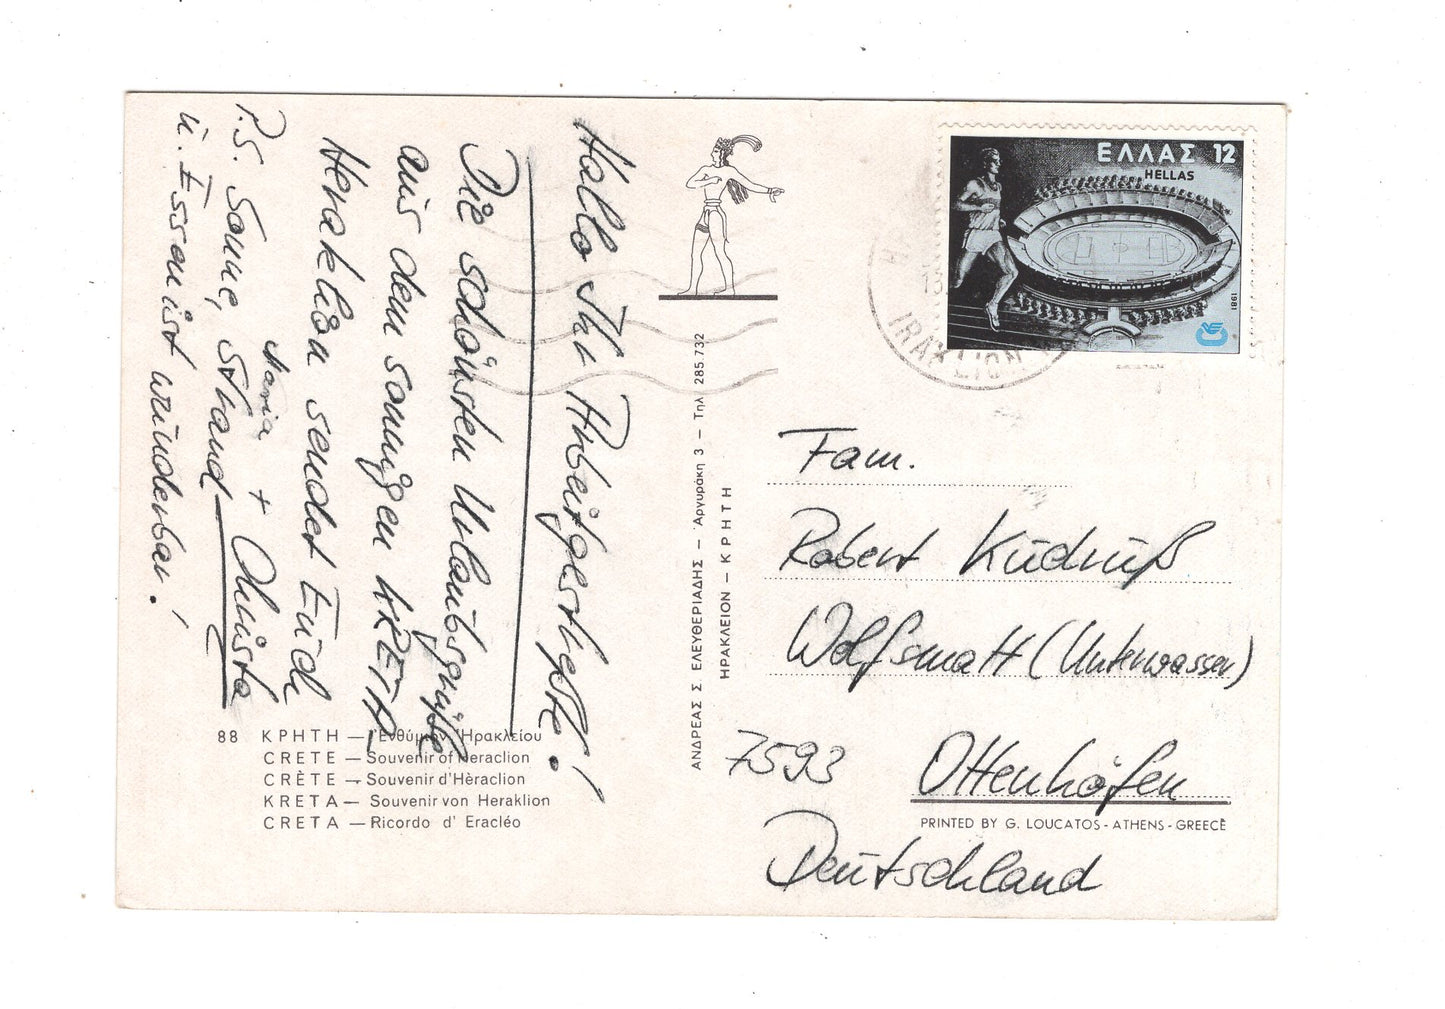 Hallo Ihr Arbeitgestreßte!
Die schönsten Urlaubsgrüße
aus dem sonnigen KRETA,
Heraklion sendet Euch
Maria + Christa
P.S. Sonne, Strand
u. Essen ist wunderbar!
88 ΚΡΗΤΗ — Ἐνθύμιον Ἡρακλείου
CRETE — Souvenir of Heraclion
CRÈTE — Souvenir d'Hèraclion
KRETA — Souvenir von Heraklion
CRETA — Ricordo d' Eracléo
ΑΝΔΡΕΑΣ Σ. ΕΛΕΥΘΕΡΙΑΔΗΣ — Ἀργυράκη 3 — Τηλ 285.732
ΗΡΑΚΛΕΙΟΝ - ΚΡΗΤΗ
ΕΛΛΑΣ 12
HELLAS
1981
IRAKLION
Fam.
Robert Kudruß
Wolfsmatt (Unterwasser)
7593 Ottenhöfen
PRINTED BY G. LOUCATOS - ATHENS - GREECE
Deutschland